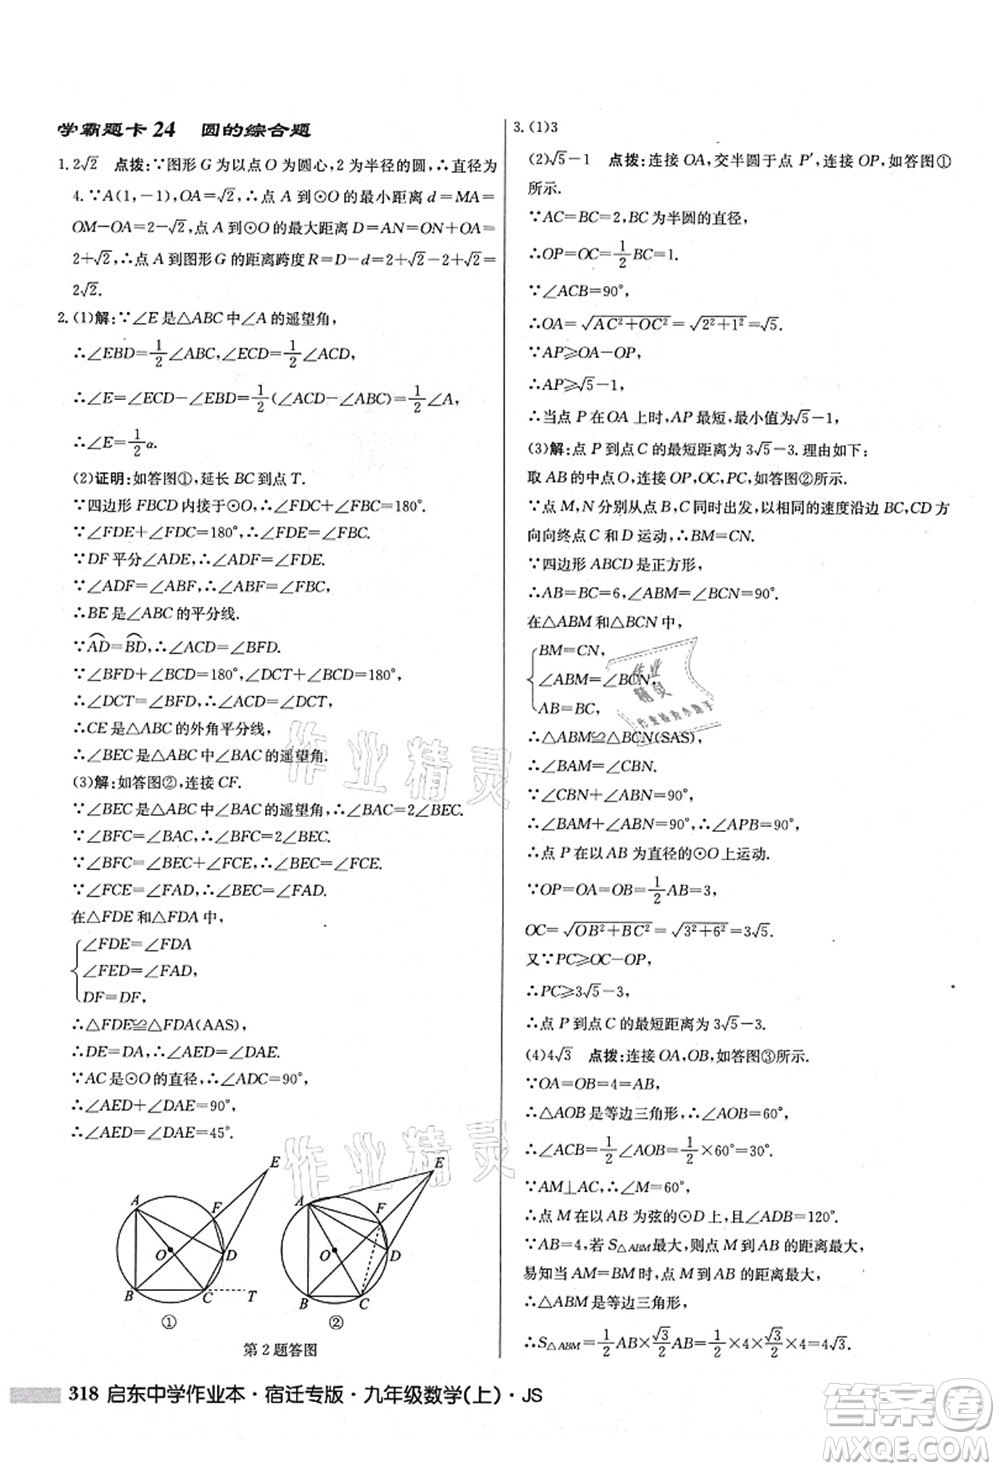 学霸题卡24 圆的综合题
1.2√2 点拨:∵图形G为以点O为圆心,2为半径的圆,∴直径为
4.∵A(1,-1),OA=√2,∴点A到⊙O的最小距离d=MA=
OM-OA=2-√2,点A到⊙O的最大距离D=AN=ON+OA=
2+√2,∴点A到图形G的距离跨度R=D-d=2+√2-2+√2=
2√2.
2.(1)解:∵∠E是△ABC中∠A的遥望角,
∴∠EBD=1/2∠ABC,∠ECD=1/2∠ACD,
∴∠E=∠ECD-∠EBD=1/2(∠ACD-∠ABC)=1/2∠A,
∴∠E=1/2α.
(2)证明:如答图①,延长BC到点T.
∵四边形FBCD内接于⊙O,
∴∠FDC+∠FBC=180°.
∵∠FDE+∠FDC=180°,∴∠FDE=∠FBC.
∵DF平分∠ADE,∴∠ADF=∠FDE.
∵∠ADF=∠ABF,∴∠ABF=∠FBC,
∴BE是∠ABC的平分线.
∵AD⌒=BD⌒,∴∠ACD=∠BFD.
∵∠BFD+∠BCD=180°,∠DCT+∠BCD=180°,
∴∠DCT=∠BFD,∴∠ACD=∠DCT,
∴CE是△ABC的外角平分线,
∴∠BEC是△ABC中∠BAC的遥望角.
(3)解:如答图②,连接CF.
∵∠BEC是△ABC中∠BAC的遥望角,∴∠BAC=2∠BEC.
∵∠BFC=∠BAC,∴∠BFC=2∠BEC.
∵∠BFC=∠BEC+∠FCE,∴∠BEC=∠FCE.
∵∠FCE=∠FAD,∴∠BEC=∠FAD.
在△FDE和△FDA中,
∠FDE=∠FDA
∠FED=∠FAD,
DF=DF,
∴△FDE≌△FDA(AAS),
∴DE=DA,∴∠AED=∠DAE.
∵AC是⊙O的直径,∴∠ADC=90°,
∴∠AED+∠DAE=90°,
∴∠AED=∠DAE=45°.
A F E O D B C T
①
A F E O D B C
②
第2题答图
3.(1)3
(2)√5-1 点拨:连接OA,交半圆于点P′,连接OP,如答图①
所示.
∵AC=BC=2,BC为半圆的直径,
∴OP=OC=1/2BC=1.
∵∠ACB=90°,
∴OA=√(AC²+OC²)=√(2²+1²)=√5.
∵AP≥OA-OP,
∴AP≥√5-1,
∴当点P在OA上时,AP最短,最小值为√5-1,
(3)解:点P到点C的最短距离为3√5-3.理由如下:
取AB的中点O,连接OP,OC,PC,如答图②所示.
∵点M,N分别从点B,C同时出发,以相同的速度沿BC,CD方
向向终点C和D运动,∴BM=CN.
∵四边形ABCD是正方形,
∴AB=BC=6,∠ABM=∠BCN=90°.
在△ABM和△BCN中,
BM=CN,
∠ABM=∠BCN,
AB=BC,
∴△ABM≌△BCN(SAS),
∴∠BAM=∠CBN.
∵∠CBN+∠ABN=90°,
∴∠BAM+∠ABN=90°,∴∠APB=90°,
∴点P在以AB为直径的⊙O上运动.
∵OP=OA=OB=1/2AB=3,
OC=√(OB²+BC²)=√(3²+6²)=3√5.
又∵PC≥OC-OP,
∴PC≥3√5-3,
∴点P到点C的最短距离为3√5-3.
(4)4√3 点拨:连接OA,OB,如答图③所示.
∵OA=OB=4=AB,
∴△AOB是等边三角形,∴∠AOB=60°,
∴∠ACB=1/2∠AOB=1/2×60°=30°.
∵AM⊥AC,∴∠AMB=60°,
∴点M在以AB为弦的⊙D上,且∠ADB=120°.
∵AB=4,若S△ABM最大,则点M到AB的距离最大,
易知当AM=BM时,点M到AB的距离最大,
∴△ABM为等边三角形,
∴S△ABM=1/2AB×√3/2AB=1/2×4×√3/2×4=4√3.
318 启东中学作业本·宿迁专版·九年级数学(上)·JS
作业精灵
作业精灵
作业精灵
作业检查小助手
答案圈
MXQE.COM